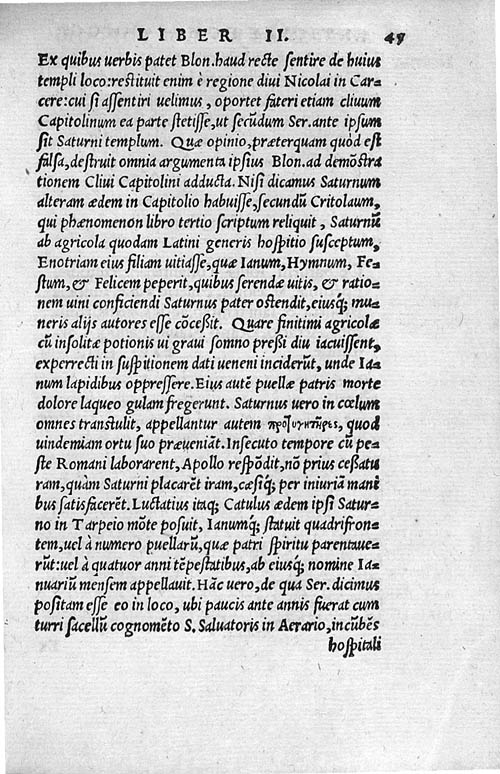 LIBER II. 49
Ex quibus uerbis patet Blon.haud recte sentire de huius
templi loco:restituit enim è regione diui Nicolai in Car=
cere:cui si assentiri uelimus, oportet fateri etiam cliuum
Capitolinum ea parte stetisse,ut secũdum Ser.ante ipsum
sit Saturni templum. Quæ opinio,præterquam quòd est
falsa,destruit omnia argumenta ipsius Blon.ad demõstra
tionem Cliui Capitolini adducta. Nisi dicamus Saturnum
alteram ædem in Capitolio habuisse,secundũ Critolaum,
qui phænomenon libro tertio scriptum reliquit, Saturnũ
ab agricola quodam Latini generis hospitio susceptum,
Enotriam eius filiam uitiasse,quæ Ianum,Hymnum, Fe=
stum,& Felicem peperit,quibus serendæ uitis, & ratio=
nem uini conficiendi Saturnus pater ostendit,eiusq́; mu=
neris alijs autores esse cõcessit. Quare finitimi agricolæ
cũ insolitæ potionis ui graui somno pressi diu iacuissent,
experrecti in suspitionem dati ueneni inciderũt, unde Ia=
num lapidibus oppressere.Eius autẽ puellæ patris morte
dolore laqueo gulam fregerunt. Saturnus uero in cœlum
omnes transtulit, appellantur autem προτρυγητῆρες, quod
uindemiam ortu suo præueniãt.Insecuto tempore cũ pe=
ste Romani laborarent,Apollo respõdit,nõ prius cessatu
ram,quàm Saturni placarẽt iram,cæsiq́; per iniuriã mani
bus satisfacerẽt.Luctatius itaq; Catulus ædem ipsi Satur=
no in Tarpeio mõte posuit, Ianumq́; statuit quadrifron=
tem,uel à numero puellarũ,quæ patri spiritu parentaue=
rũt:uel à quatuor anni tẽpestatibus,ab eiusq́; nomine Ia=
nuariũ mensem appellauit.Hãc uero,de qua Ser.dicimus
positam esse eo in loco, ubi paucis ante annis fuerat cum
turri sacellũ cognomẽto S.Saluatoris in Aerario,incũbẽs
hospitali